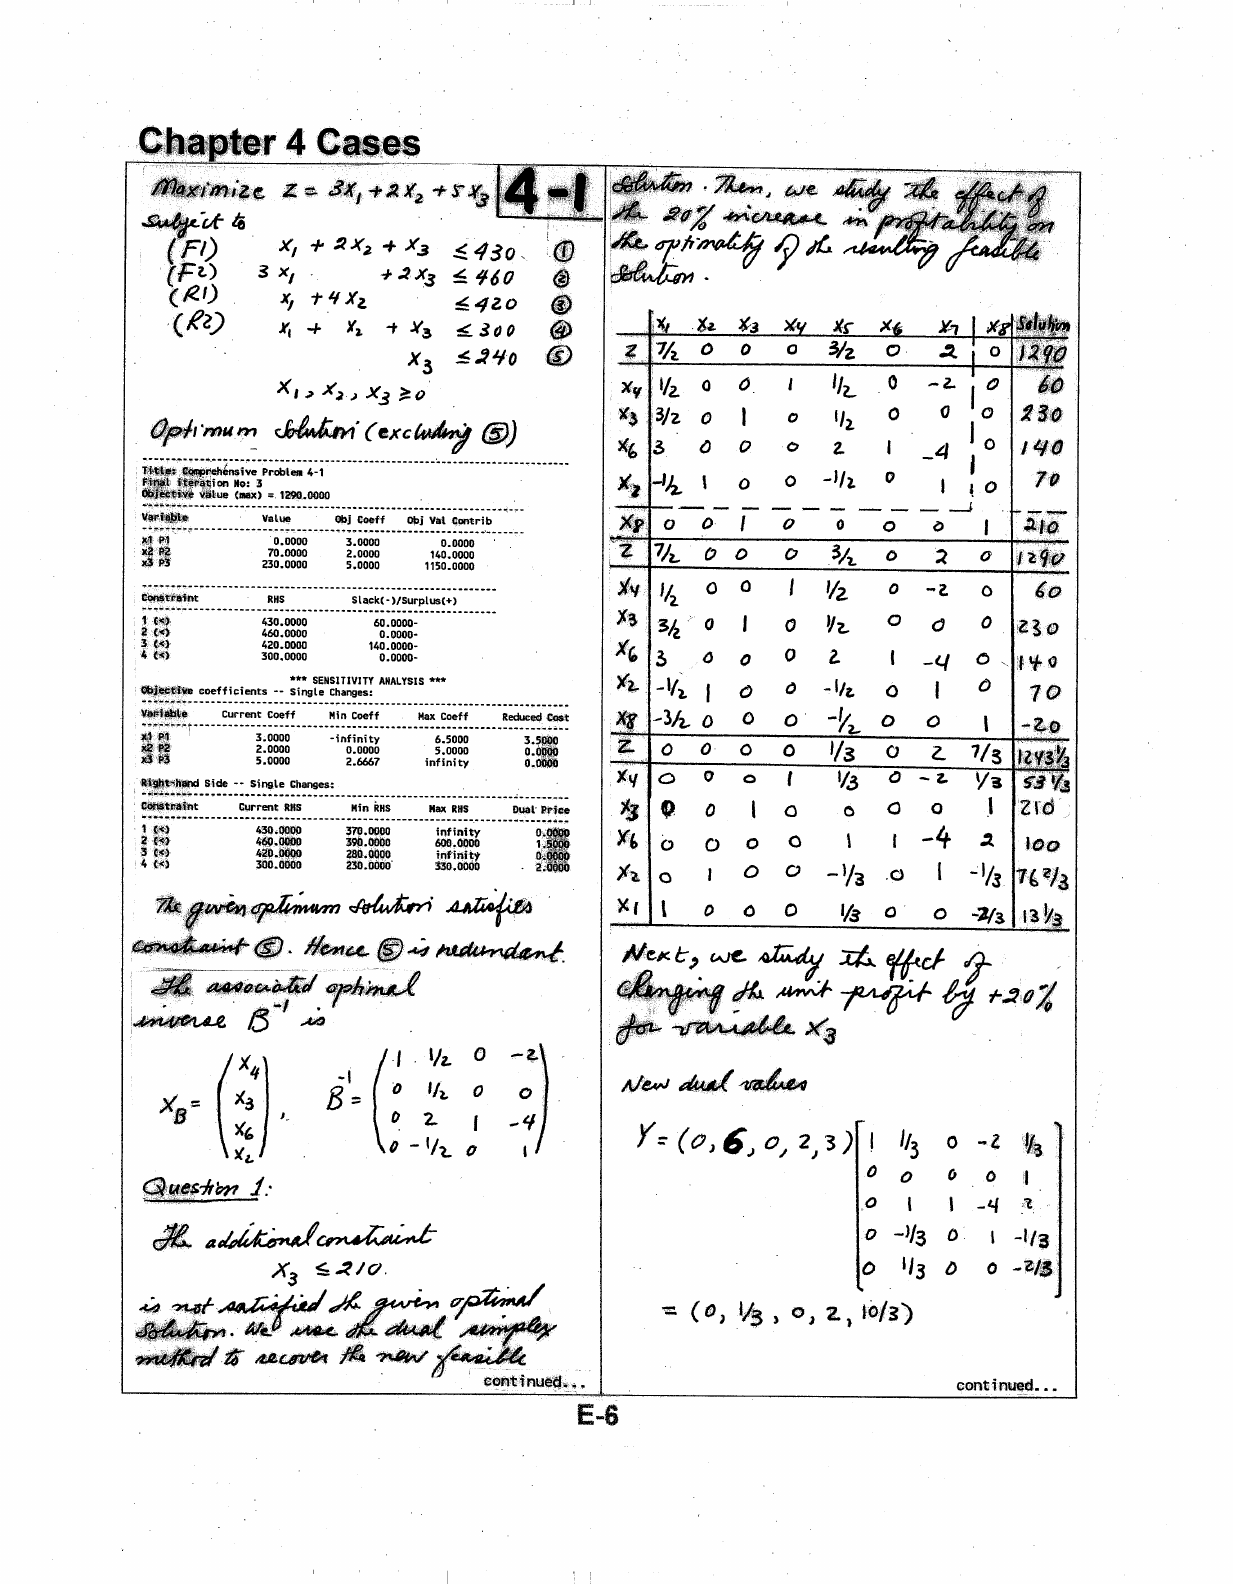 Chapter 4 Cases
4-1
Maximize Z = 3X₁ + 2X₂ + 5X₃
Subject to
(F1) X₁ + 2X₂ + X₃ ≤ 430 ①
(F2) 3X₁ + 2X₃ ≤ 460 ②
(R1) X₁ + 4X₂ ≤ 420 ③
(R2) X₁ + X₂ + X₃ ≤ 300 ④
X₃ ≤ 240 ⑤
X₁, X₂, X₃ ≥ 0
Optimum Solution (excluding ⑤)
Title: Comprehensive Problem 4-1
Final iteration No: 3
Objective value (max) = 1290.0000
Variable Value Obj Coeff Obj Val Contrib
x1 P1 0.0000 3.0000 0.0000
x2 P2 70.0000 2.0000 140.0000
x3 P3 230.0000 5.0000 1150.0000
Constraint RHS Slack(-)/Surplus(+)
1 (<) 430.0000 60.0000-
2 (<) 460.0000 0.0000-
3 (<) 420.0000 140.0000-
4 (<) 300.0000 0.0000-
*** SENSITIVITY ANALYSIS ***
Objective coefficients -- Single Changes:
Variable Current Coeff Min Coeff Max Coeff Reduced Cost
x1 P1 3.0000 -infinity 6.5000 3.5000
x2 P2 2.0000 0.0000 5.0000 0.0000
x3 P3 5.0000 2.6667 infinity 0.0000
Right-hand Side -- Single Changes:
Constraint Current RHS Min RHS Max RHS Dual Price
1 (<) 430.0000 370.0000 infinity 0.0000
2 (<) 460.0000 390.0000 600.0000 1.5000
3 (<) 420.0000 280.0000 infinity 0.0000
4 (<) 300.0000 230.0000 330.0000 2.0000
The given optimum solution satisfies
constraint ⑤. Hence ⑤ is redundant.
The associated optimal
inverse B⁻¹ is
X_B = (X₄ X₃ X₆ X₂), B⁻¹ =
1 1/2 0 -2
0 1/2 0 0
0 2 1 -4
0 -1/2 0 1
Question 1:
The additional constraint
X₃ ≤ 210.
is not satisfied the given optimal
Solution. We use the dual simplex
method to recover the new feasible
continued...
solution. Then, we study the effect of
the 20% increase in profitability on
the optimality of the resulting feasible
Solution.
X₁ X₂ X₃ X₄ X₅ X₆ X₇ X₈ Solution
Z 7/2 0 0 0 3/2 0 2 0 1290
X₄ 1/2 0 0 1 1/2 0 -2 0 60
X₃ 3/2 0 1 0 1/2 0 0 0 230
X₆ 3 0 0 0 2 1 -4 0 140
X₂ -1/2 1 0 0 -1/2 0 1 0 70
X₈ 0 0 1 0 0 0 0 1 210
Z 7/2 0 0 0 3/2 0 2 0 1290
X₄ 1/2 0 0 1 1/2 0 -2 0 60
X₃ 3/2 0 1 0 1/2 0 0 0 230
X₆ 3 0 0 0 2 1 -4 0 140
X₂ -1/2 1 0 0 -1/2 0 1 0 70
X₈ -3/2 0 0 0 -1/2 0 0 1 -20
Z 0 0 0 0 1/3 0 2 7/3 1243 1/3
X₄ 0 0 0 1 1/3 0 -2 1/3 53 1/3
X₃ 0 0 1 0 0 0 0 1 210
X₆ 0 0 0 0 1 1 -4 2 100
X₂ 0 1 0 0 -1/3 0 1 -1/3 76 2/3
X₁ 1 0 0 0 1/3 0 0 -2/3 13 1/3
Next, we study the effect of
changing the unit profit by +20%
for variable X₃
New dual values
Y = (0, 6, 0, 2, 3)
1 1/3 0 -2 1/3
0 0 0 0 1
0 1 1 -4 2
0 -1/3 0 1 -1/3
0 1/3 0 0 -2/3
= (0, 1/3, 0, 2, 10/3)
continued...
E-6